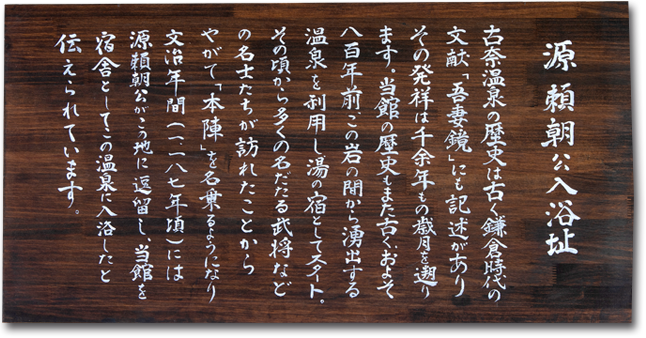 源頼朝公入浴址
古奈温泉の歴史は古く鎌倉時代の
文献「吾妻鏡」にも記述があり
その発祥は千余年もの歳月を遡り
ます。当館の歴史もまた古く、およそ
八百年前この岩の間から湧出する
温泉を利用し湯の宿としてスタート。
その頃から多くの名だたる武将など
の名士たちが訪れたことから
やがて「本陣」を名乗るようになり
文治年間（一一八七年頃）には
源頼朝公がこう地に逗留し、当館を
宿舎としてこの温泉に入浴したと
伝えられています。